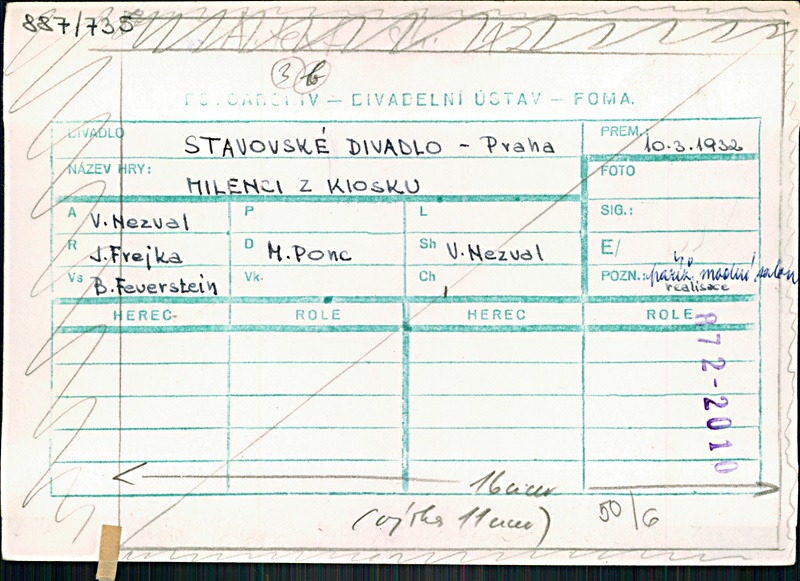 887/735
3 b
DIVADELNÍ ÚSTAV — FOMA.
DIVADLO STAVOVSKÉ DIVADLO - Praha PREM.: 10.3.1932
NÁZEV HRY: MILENCI Z KIOSKU FOTO
A V. Nezval P L SIG.:
R J. Frejka D M. Ponc Sh V. Nezval E/
Vs B. Feuerstein Vk. Ch POZN.: salon
realisace
HEREC ROLE HEREC ROLE
872-2010
16 cm
(výška 11 cm) 50/6